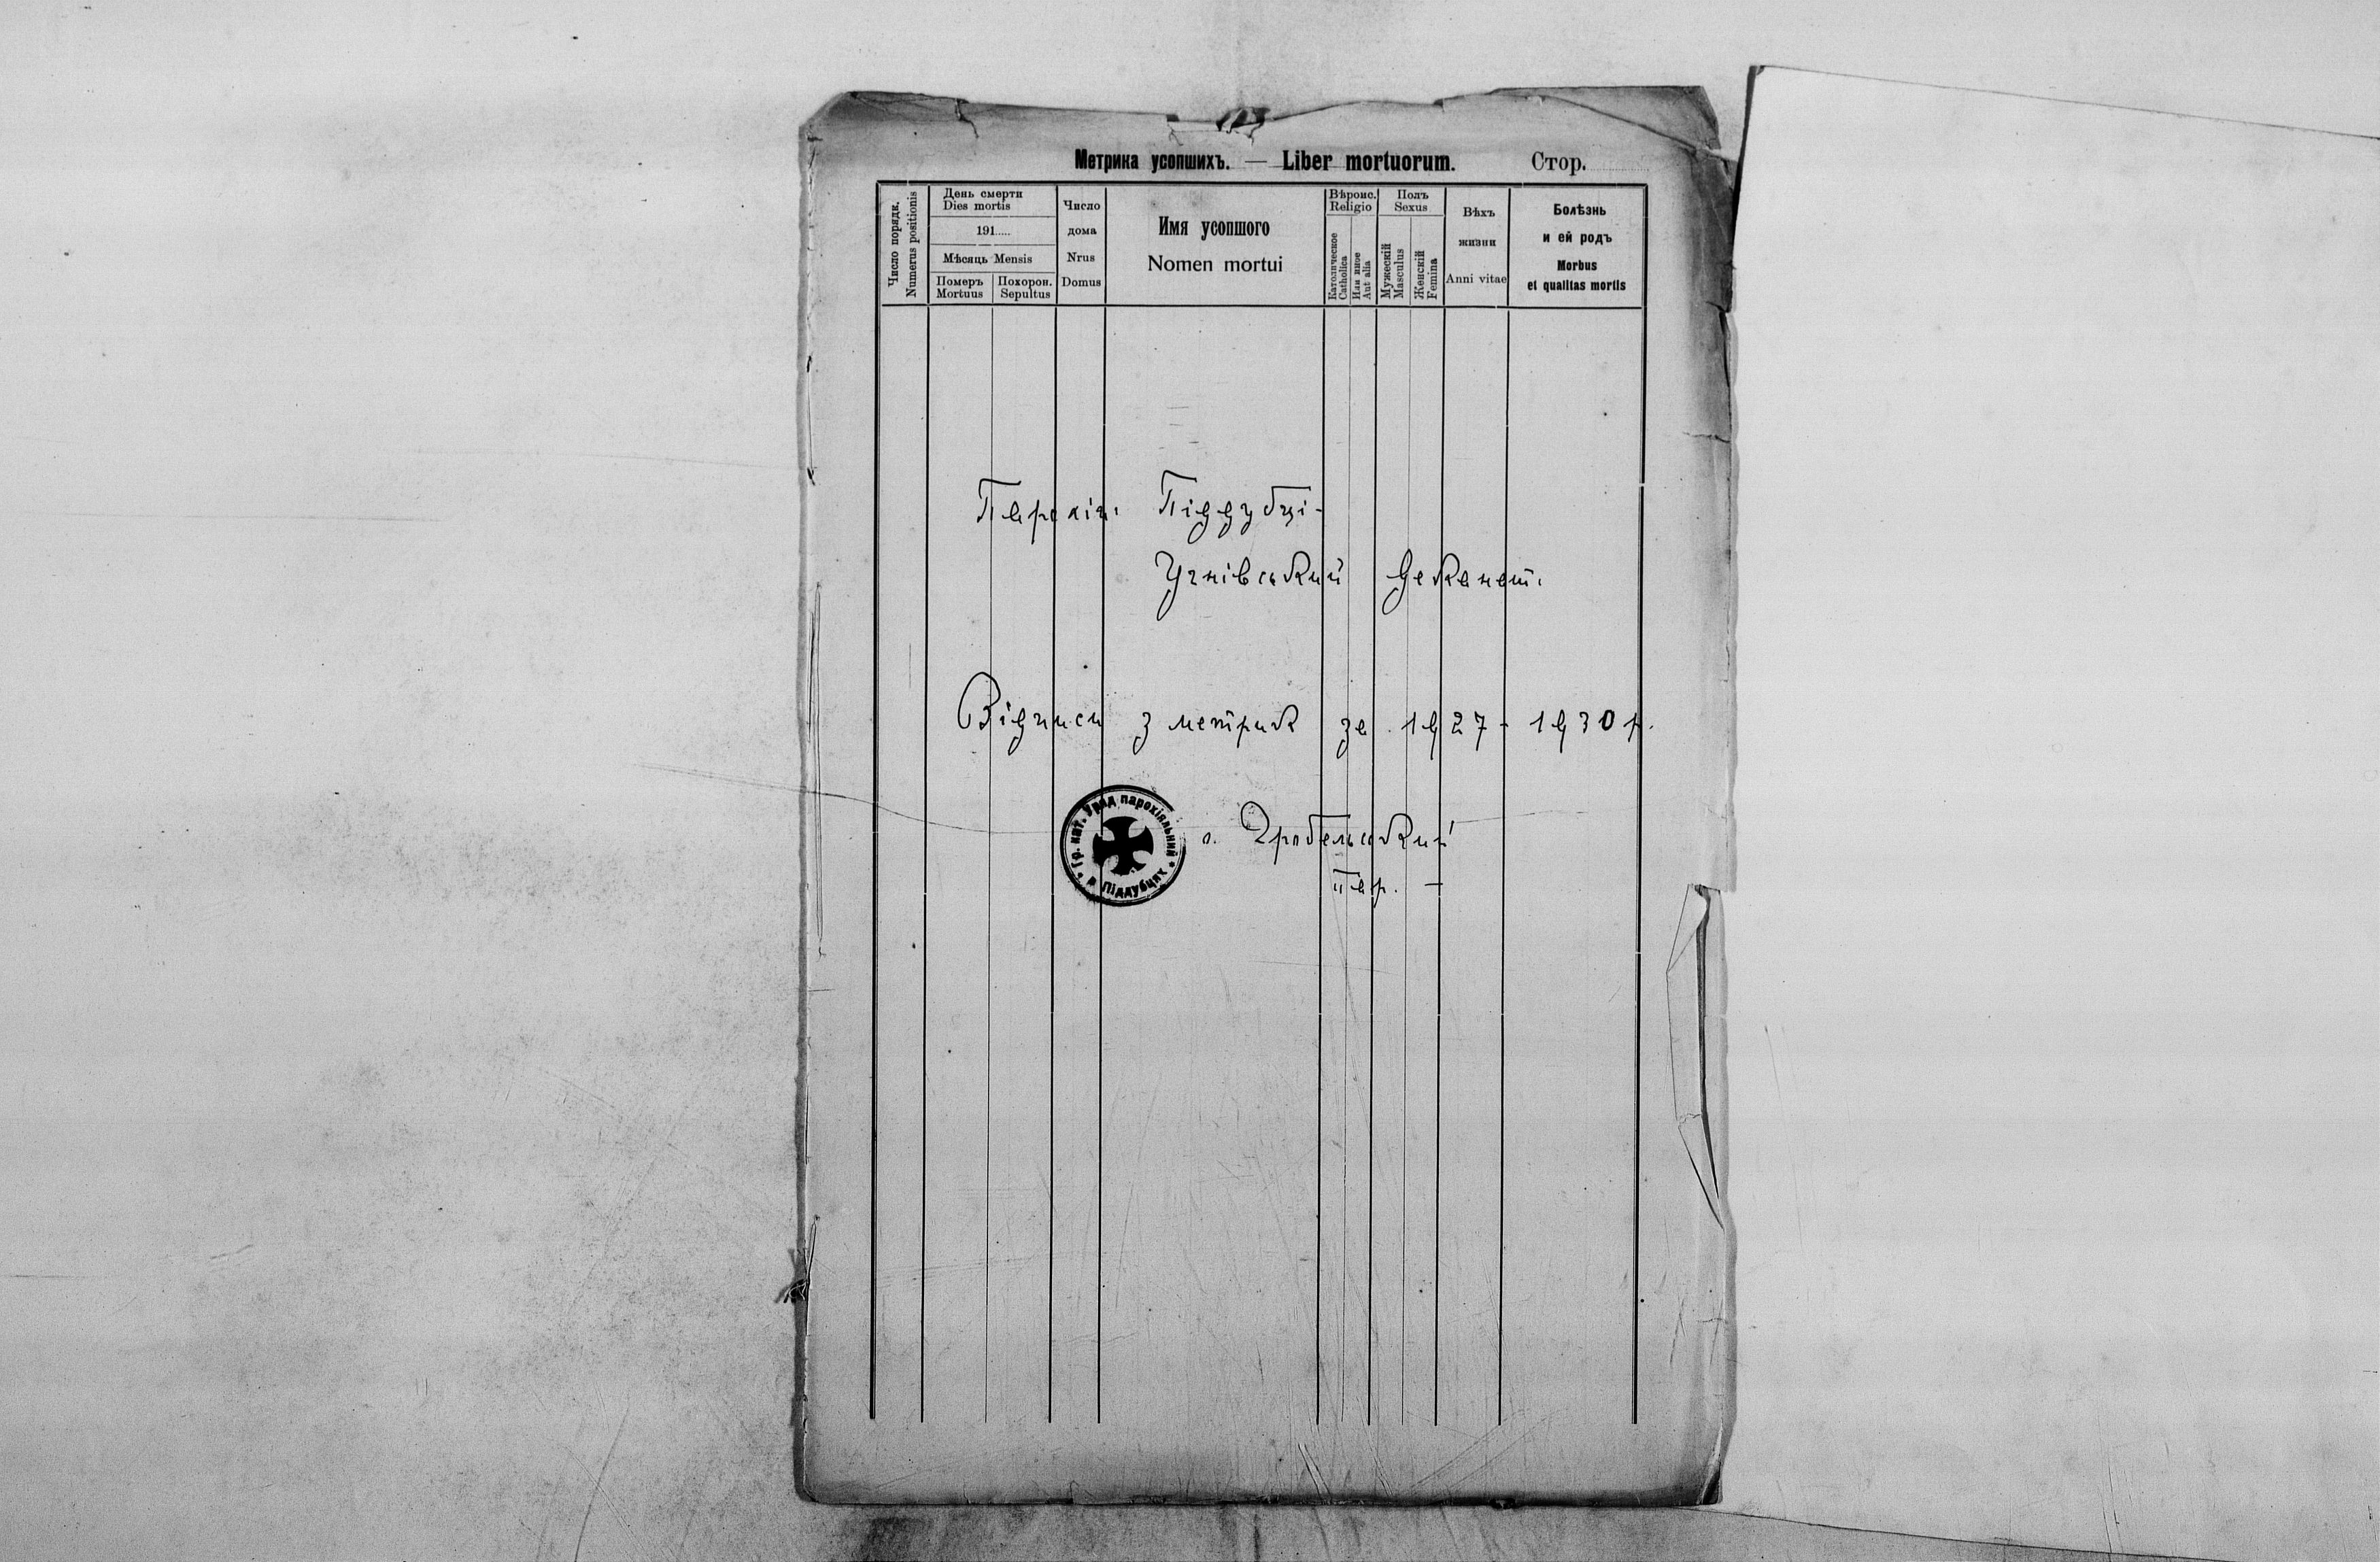 Метрика усопшихъ. — Liber mortuorum. Стор.
Число порядк.
Numerus positionis
День смерти
Dies mortis
191.....
Мѣсяць Mensis
Померъ
Mortuus
Похорон.
Sepultus
Число
дома
Nrus
Domus
Имя усопшого
Nomen mortui
Вѣроис.
Religio
Католическое
Catholica
Или иное
Aut alia
Полъ
Sexus
Мужескій
Masculus
Женскій
Femina
Вѣхъ
жизни
Anni vitae
Болѣзнь
и ей родъ
Morbus
et qualitas mortis
Парохія: Піддубці -
Угнівський деканат.
Відписи з метрик за 1927 - 1930 р.
Гр. кат. Уряд парохіяльний * в Піддубцях *
о. Гробельський
пар. —